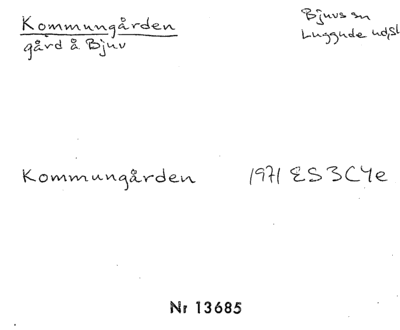 Kommungården
gård å Bjuv
Bjuvs sn
Luggude hd, Sk
Kommungården 1971 ES 3C4e
Nr 13685